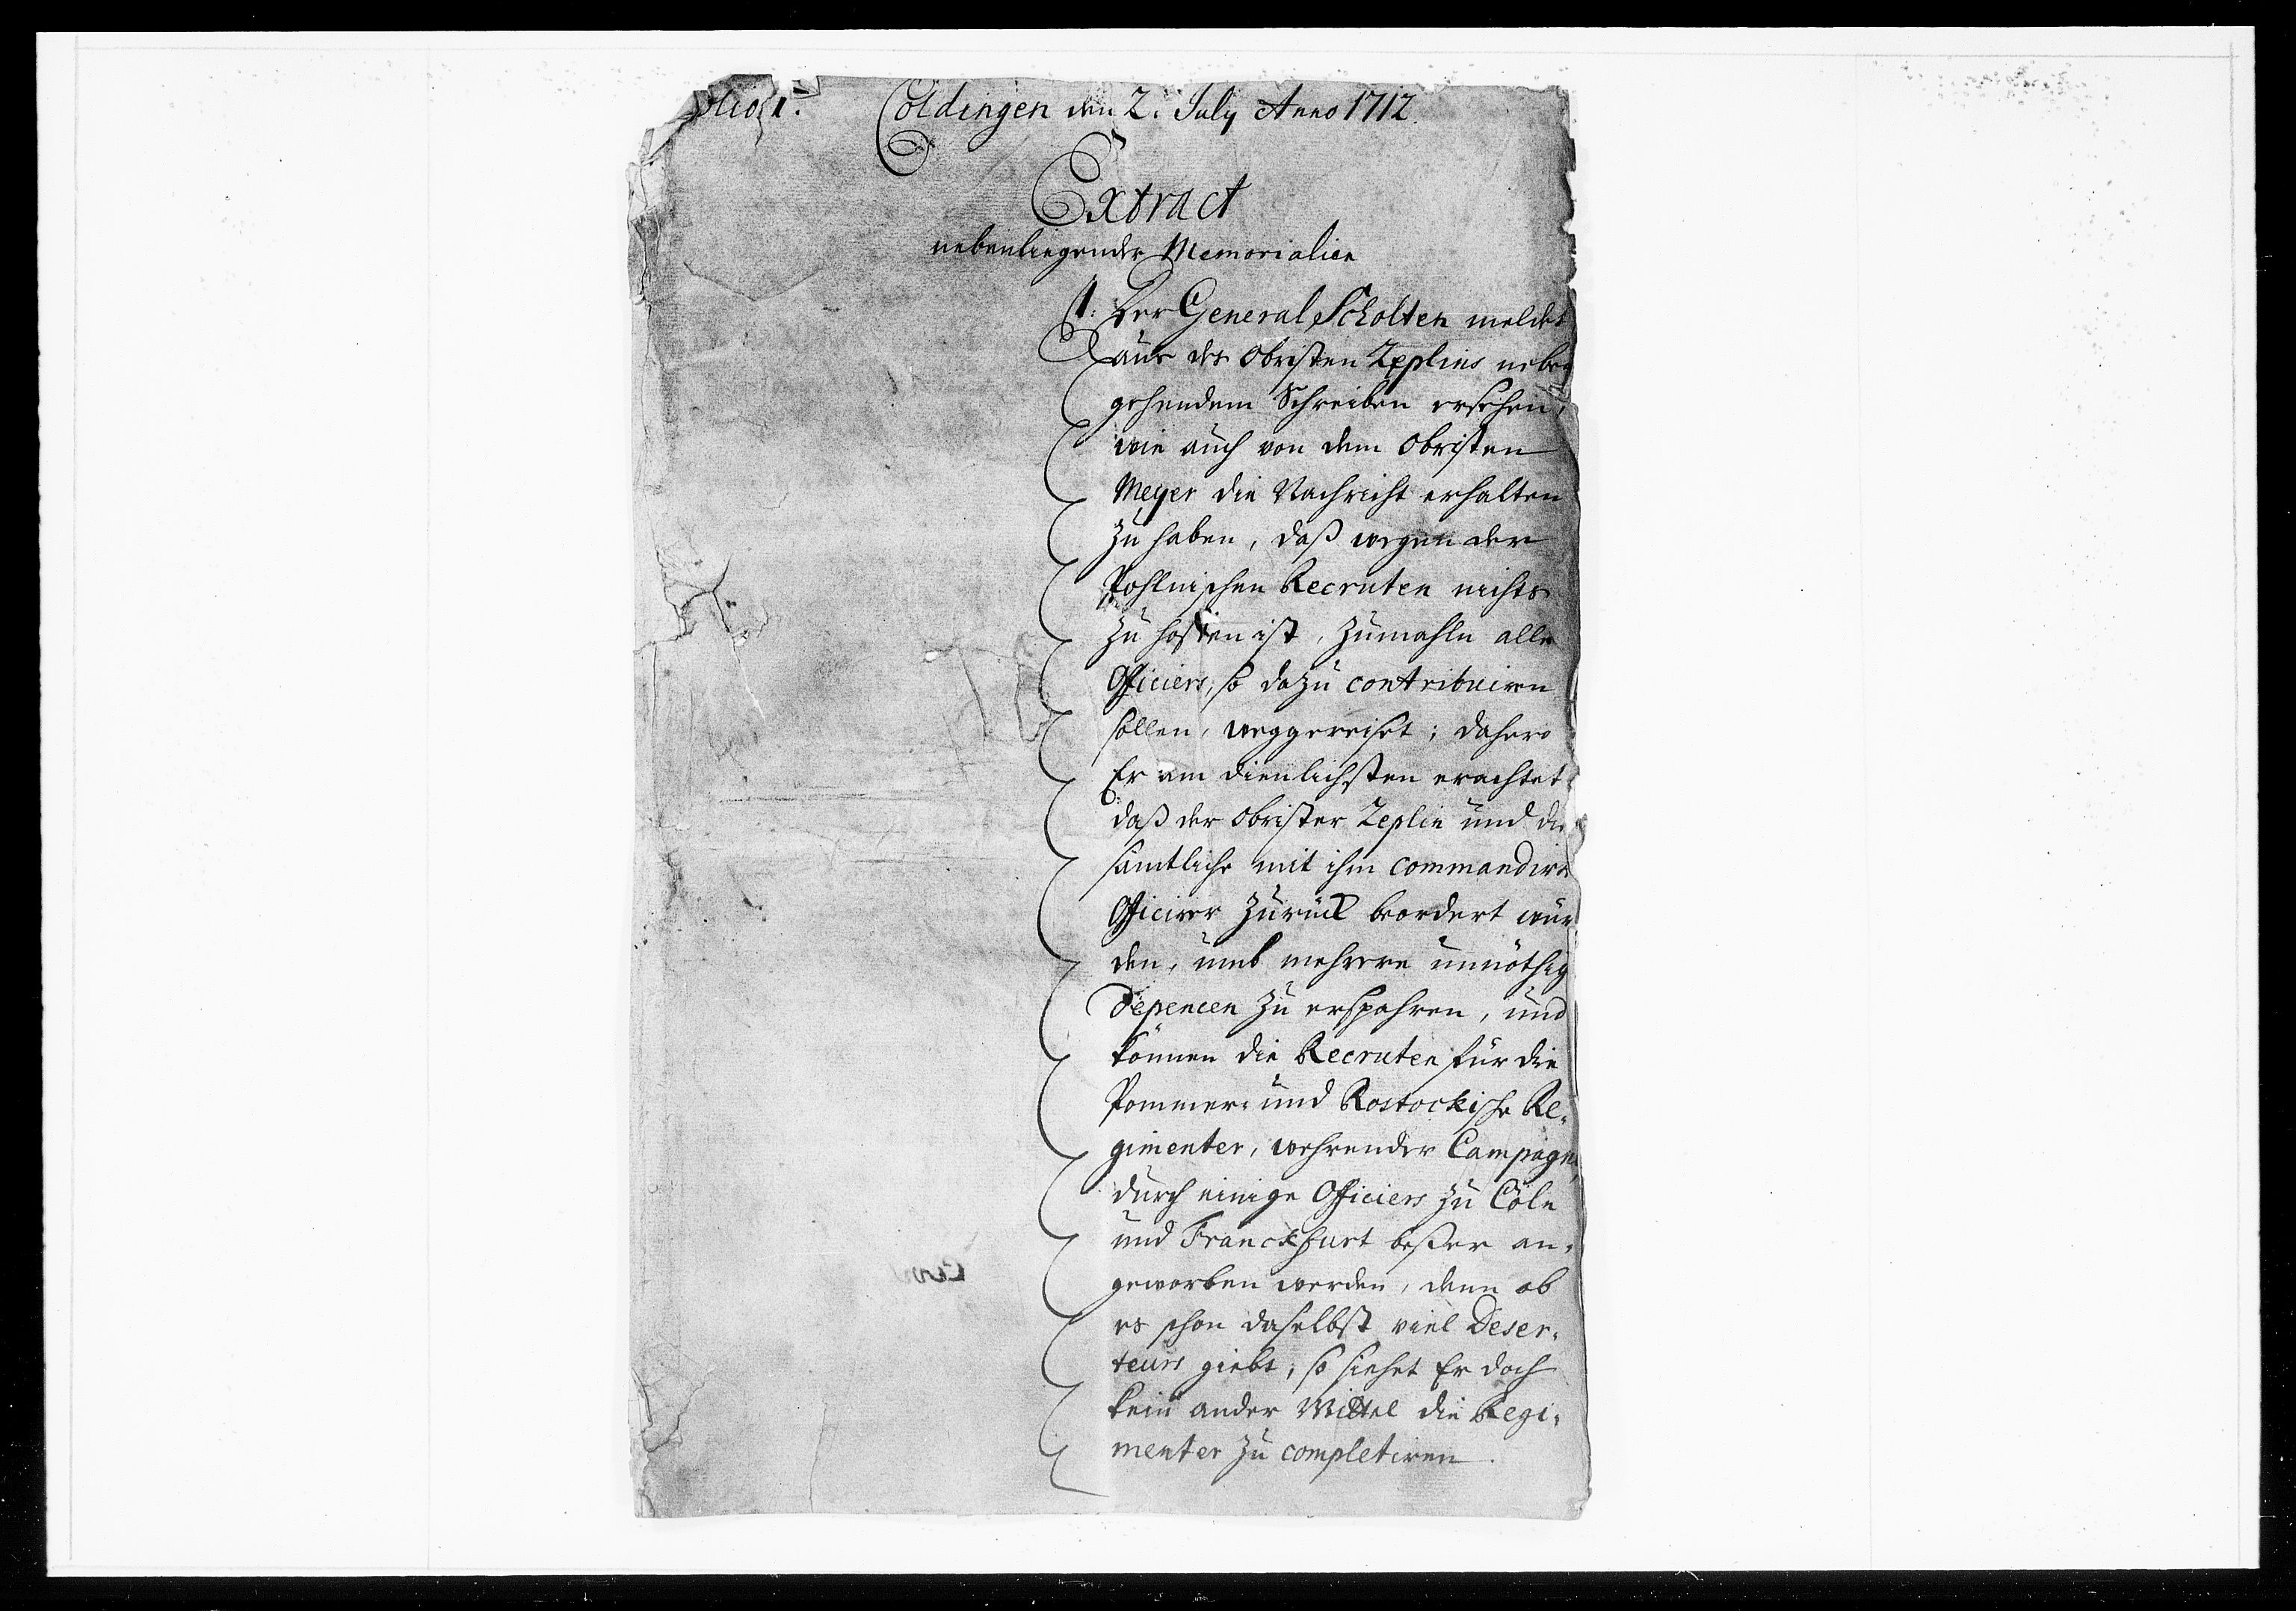 Folio 1. Coldingen den 2. July Anno 1712.
Extract
nebenliegender Memorialien
1. Der General Scholten meldet
aus des Obristen Zeplins neben
gehendem Schreiben ersehen,
wie auch von dem Obristen
Meyer die Nachricht erhalten
zu haben, daß wegen der
Pohlnischen Recruten nichts
zu hoffen ist, zumahln alle
Officiers, so dazu contribuiren
sollen, weggereiset; dahero
Er am dienlichsten erachtet
daß der Obrister Zeplin und die
sämtliche mit ihm commandirte
Officirer zurück beordert wür
den, umb mehrere unnöthig
depencen zu erspahren, und
können die Recruten für die
Pommer- und Rostockische Re-
gimenter, wehrender Campagne,
durch einige Officiers zu Cöln
und Franckfurt beßer an-
geworben werden, denn ob
es schon daselbst viel Deser-
teurs giebt, so siehet Er doch
kein ander Mittel die Regi-
menter zu completiren.